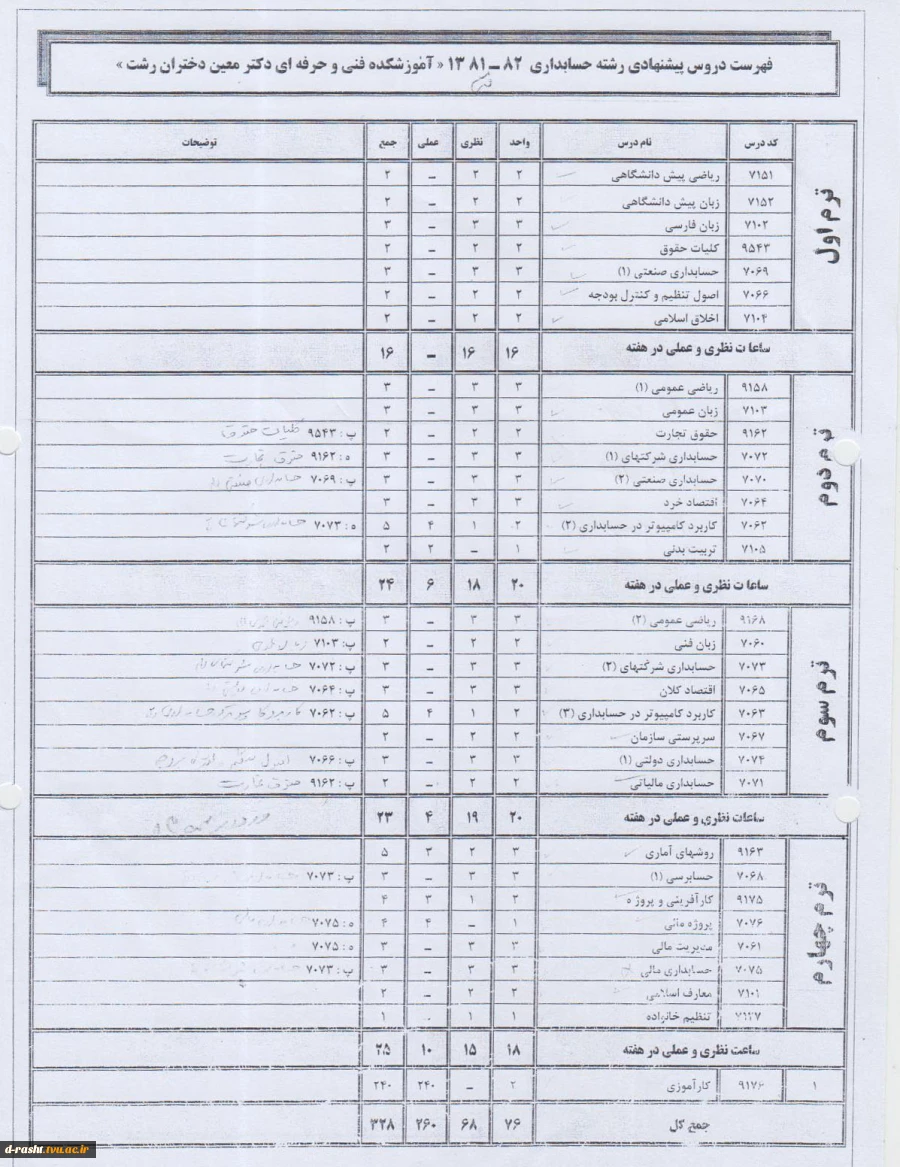 فهرست دروس پیشنهادی رشته حسابداری ۸۲ – ۱۳۸۱ « آموزشکده فنی و حرفه ای دکتر معین دختران رشت »
کد درس نام درس واحد نظری عملی جمع توضیحات
ترم اول
۷۱۵۱ ریاضی پیش دانشگاهی ۲ ۲ – ۲
۷۱۵۲ زبان پیش دانشگاهی ۲ ۲ – ۲
۷۱۰۲ زبان فارسی ۳ ۳ – ۳
۹۵۴۳ کلیات حقوق ۲ ۲ – ۲
۷۰۶۹ حسابداری صنعتی (۱) ۳ ۳ – ۳
۷۰۶۶ اصول تنظیم و کنترل بودجه ۲ ۲ – ۲
۷۱۰۴ اخلاق اسلامی ۲ ۲ – ۲
ساعات نظری و عملی در هفته ۱۶ ۱۶ – ۱۶
ترم دوم
۹۱۵۸ ریاضی عمومی (۱) ۳ ۳ – ۳
۷۱۰۳ زبان عمومی ۳ ۳ – ۳
۹۱۶۲ حقوق تجارت ۲ ۲ – ۲ پ : ۹۵۴۳ کلیات حقوق
۷۰۷۲ حسابداری شرکتهای (۱) ۳ ۳ – ۳ ه : ۹۱۶۲ حقوق تجارت
۷۰۷۰ حسابداری صنعتی (۲) ۳ ۳ – ۳ پ : ۷۰۶۹
۷۰۶۴ اقتصاد خرد ۳ ۳ – ۳
۷۰۶۲ کاربرد کامپیوتر در حسابداری (۲) ۲ ۱ ۴ ۵ ه : ۷۰۷۳
۷۱۰۵ تربیت بدنی ۱ – ۲ ۲
ساعات نظری و عملی در هفته ۲۰ ۱۸ ۶ ۲۴
ترم سوم
۹۱۶۸ ریاضی عمومی (۲) ۳ ۳ – ۳ پ : ۹۱۵۸
۷۰۶۰ زبان فنی ۲ ۲ – ۲ پ: ۷۱۰۳
۷۰۷۳ حسابداری شرکتهای (۲) ۳ ۳ – ۳ پ : ۷۰۷۲
۷۰۶۵ اقتصاد کلان ۳ ۳ – ۳ پ : ۷۰۶۴
۷۰۶۳ کاربرد کامپیوتر در حسابداری (۳) ۲ ۱ ۴ ۵ پ : ۷۰۶۲
۷۰۶۷ سرپرستی سازمان ۲ ۲ – ۲
۷۰۷۴ حسابداری دولتی (۱) ۳ ۳ – ۳ پ : ۷۰۶۶
۷۰۷۱ حسابداری مالیاتی ۲ ۲ – ۲ پ : ۹۱۶۲ حقوق تجارت
ساعات نظری و عملی در هفته ۲۰ ۱۹ ۴ ۲۳
ترم چهارم
۹۱۶۳ روشهای آماری ۳ ۲ ۳ ۵
۷۰۶۸ حسابرسی (۱) ۳ ۳ – ۳ پ : ۷۰۷۳
۹۱۷۵ کارآفرینی و پروژه ۲ ۱ ۳ ۴
۷۰۷۶ پروژه مالی ۱ – ۴ ۴ ه : ۷۰۷۵
۷۰۶۱ مدیریت مالی ۳ ۳ – ۳ ه : ۷۰۷۵
۷۰۷۵ حسابداری مالی ۳ ۳ – ۳ پ : ۷۰۷۳
۷۱۰۱ معارف اسلامی ۲ ۲ – ۲
۷۱۲۷ تنظیم خانواده ۱ ۱ ۱
ساعت نظری و عملی در هفته ۱۸ ۱۵ ۱۰ ۲۵
۱ ۹۱۷۶ کارآموزی ۲ – ۲۴۰ ۲۴۰
جمع کل ۷۶ ۶۸ ۲۶۰ ۳۲۸
d-rasht.tvu.ac.ir